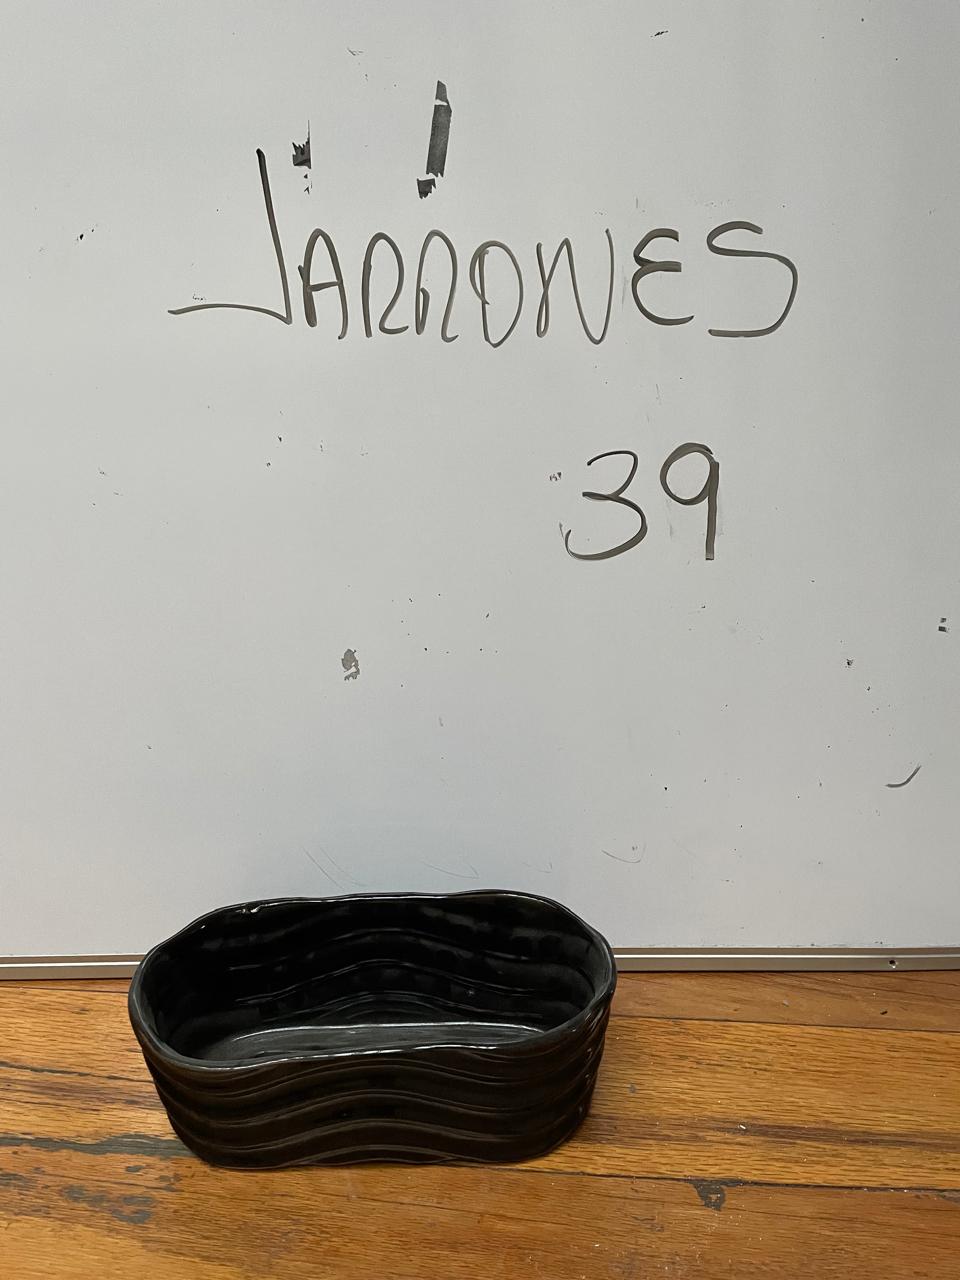 JARRONES
39